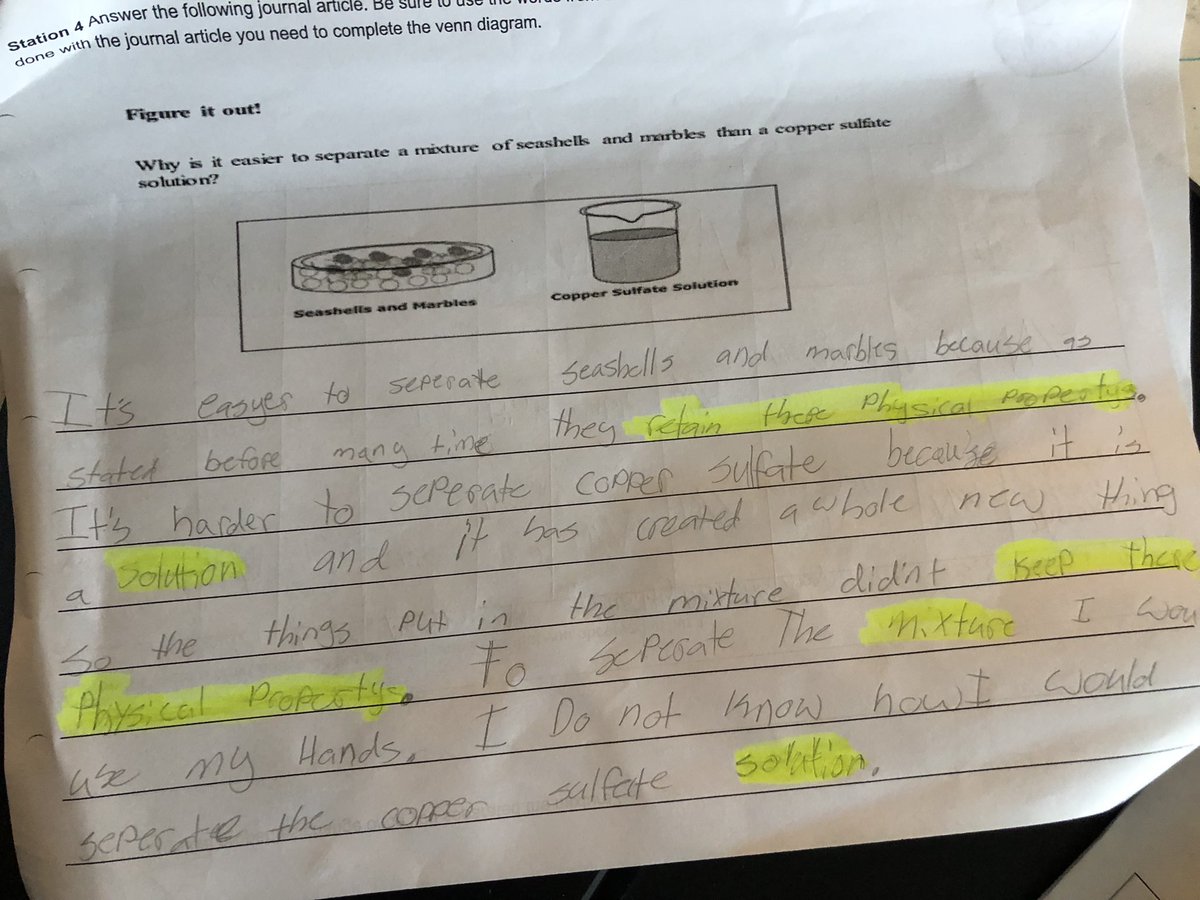 Station 4 Answer the following journal article. Be sure to use the words
done with the journal article you need to complete the venn diagram.
Figure it out!
Why is it easier to separate a mixture of seashells and marbles than a copper sulfate
solution?
Seashells and Marbles
Copper Sulfate Solution
It's easyer to seperate seashells and marbles because as
stated before many time they retain there physical propertys.
It's harder to seperate copper sulfate because it is
a solution and it has created a whole new thing
so the things put in the mixture didn't keep there
Physical Propertys. To seperate The mixture I wou
use my Hands. I Do not know how I would
seperate the copper sulfate solution.